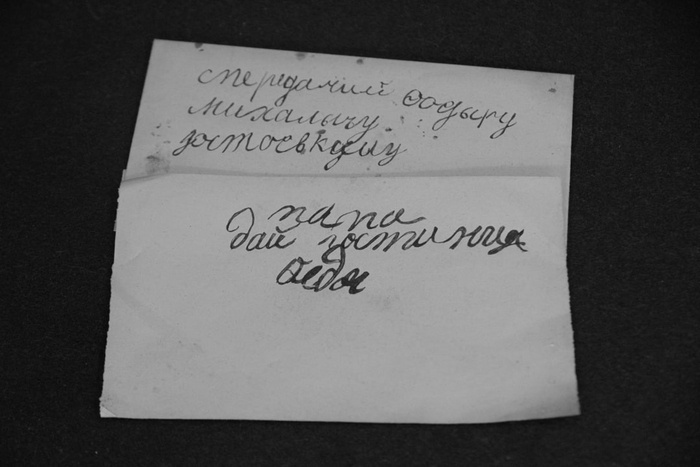 спередачии Ѳодыру
михалычу
достоевкаму
папа
дай гостинца
Ѳедя